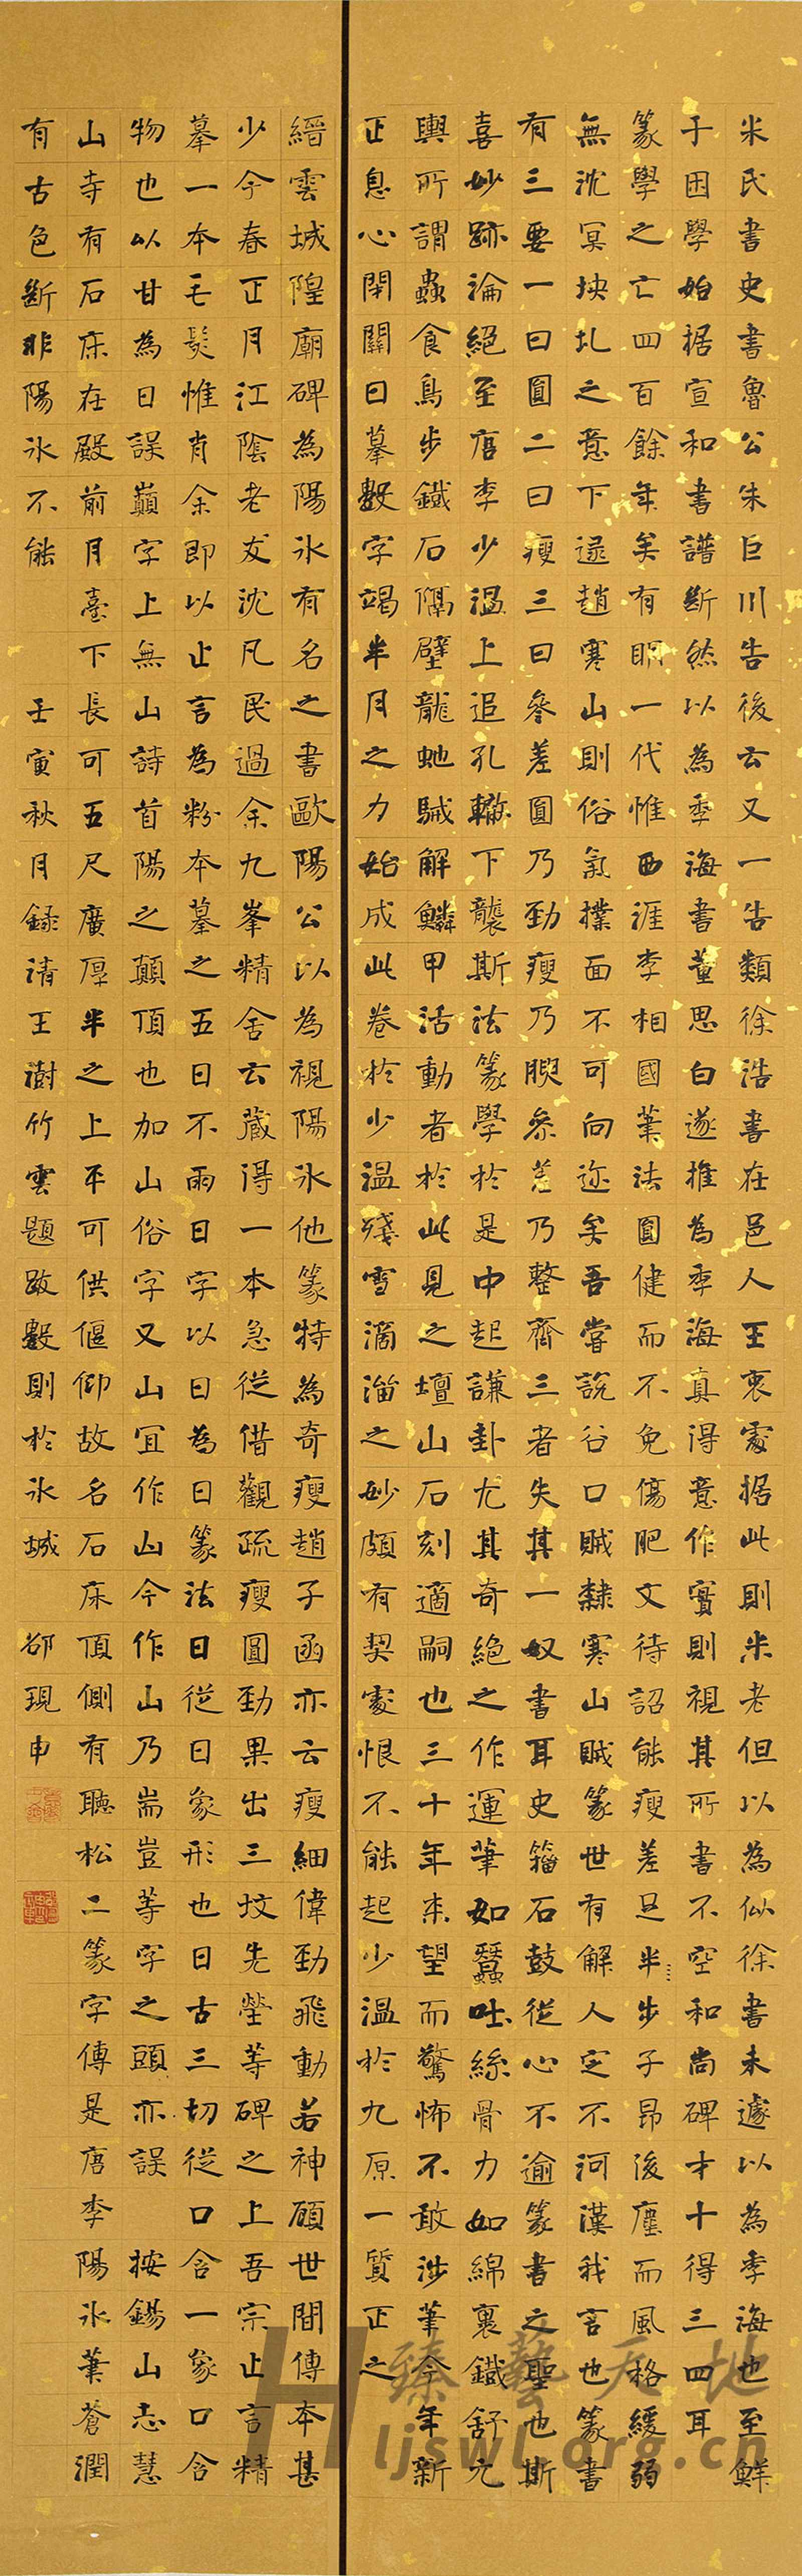 米氏書史書魯公朱巨川告後云又一告類徐浩書在邑人王衷處據此則米老但以為似徐書未遽以為季海也至鮮
于困學始据宣和書譜斷然以為季海書董思白遂推為季海真得意作實則視其所書不空和尚碑才十得三四耳
篆學之亡四百餘年矣有明一代惟西涯李相國筆法圓健而不免傷肥文待詔能瘦差足半步子昂後塵而風格緩弱
無沈冥坱圠之意下逮趙寒山則俗氣撲面不可向迩矣吾嘗說谷口賊隸寒山賊篆世有解人定不河漢我言也篆書
有三要一曰圓二曰瘦三曰參差圓乃勁瘦乃腴參差乃整齊三者失其一奴書耳史籀石鼓從心不逾篆書之聖也斯
喜妙跡淪絕至唐李少溫上追孔轍下襲斯法篆學於是中起謙卦尤其奇絕之作運筆如蠶吐絲骨力如綿裏鐵舒元
輿所謂蟲食鳥步鐵石隔壁龍虵駴解鱗甲活動者於此見之壇山石刻適嗣也三十年来望而驚怖不敢涉筆今年新
正息心閉關日摹數字竭半月之力始成此卷於少溫殘雪滴溜之妙頗有契處恨不能起少溫於九原一質正之
縉雲城隍廟碑為陽冰有名之書歐陽公以為視陽冰他篆特為奇瘦趙子函亦云瘦細偉勁飛動若神顧世間傳本甚
少今春正月江陰老友沈凡民過余九峯精舍云蔵得一本急從借觀疏瘦圓勁果出三坟先塋等碑之上吾宗止言精
摹一本毛髮惟肖余即以止言為粉本摹之五日不雨日字以日為日篆法日從日象形也日古三切從口含一象口含
物也以甘為日誤巔字上無山詩首陽之顛頂也加山俗字又山宜作山今作山乃耑豈等字之頭亦誤 按錫山志慧
山寺有石床在殿前月臺下長可五尺廣厚半之上平可供偃仰故名石床頂側有聽松二篆字傳是唐李陽冰筆蒼潤
有古色斷非陽冰不能 壬寅秋月録清王澍竹雲題跋數則於冰城 邰現申
臻藝天地
Hljswl.org.cn